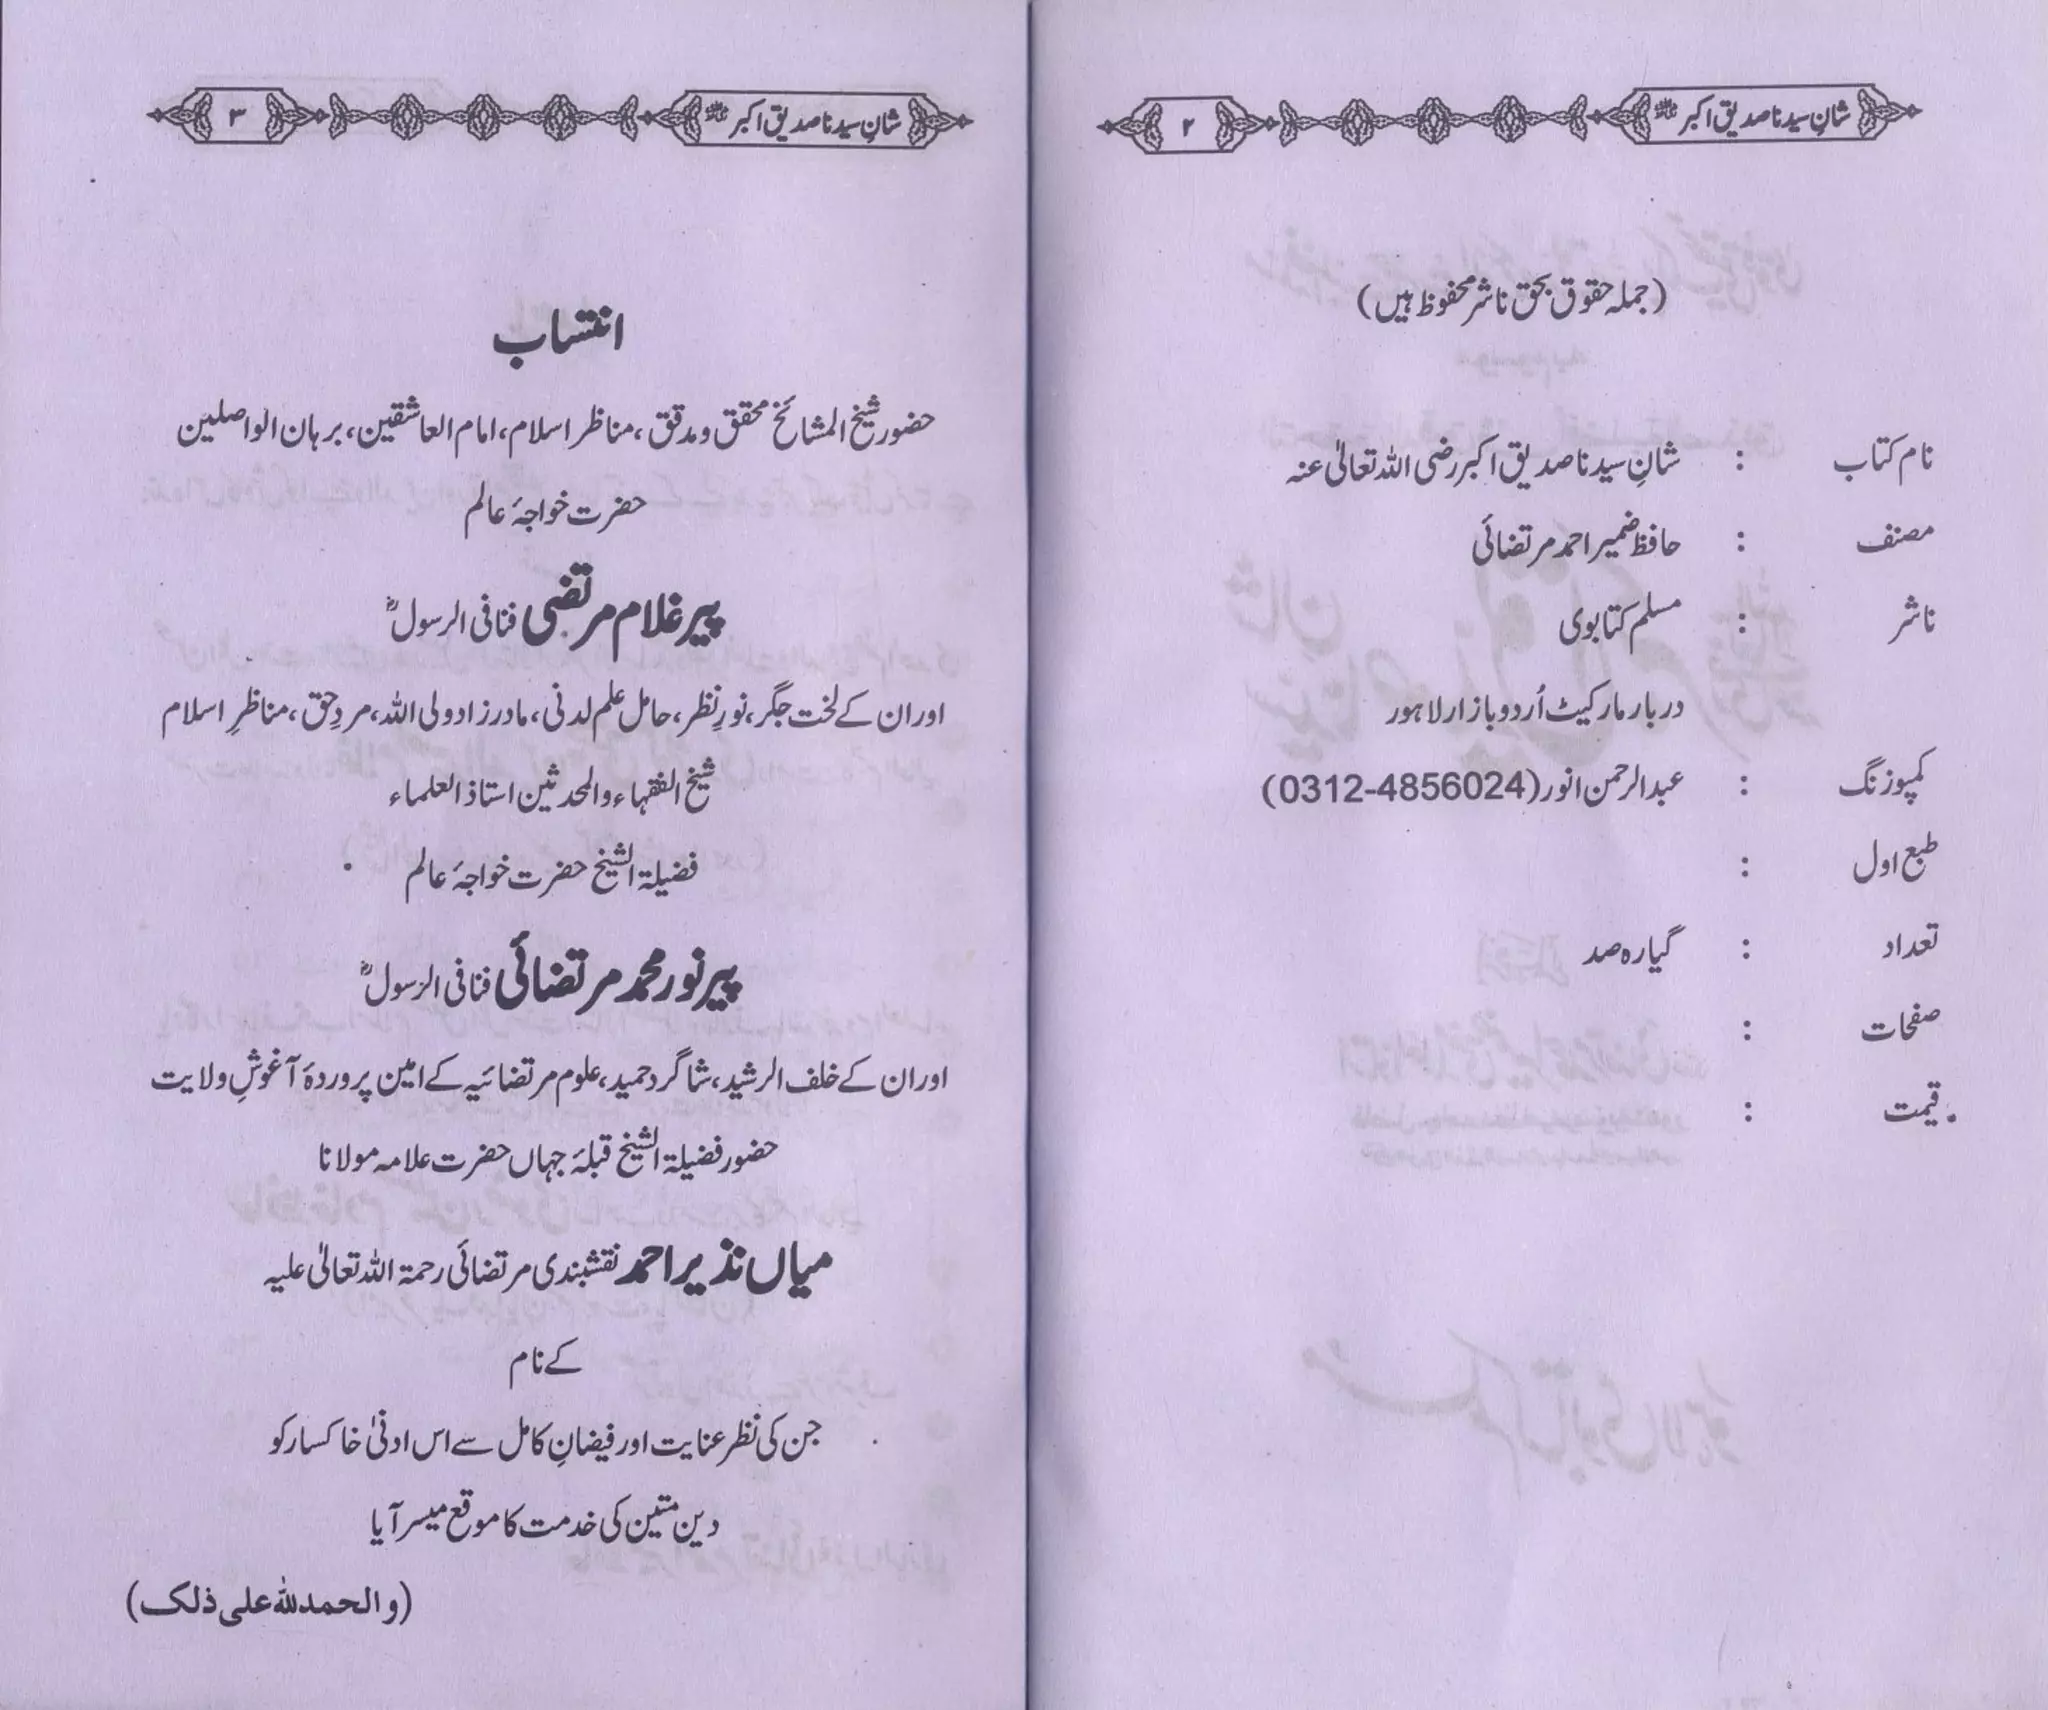 شانِ سیدنا صدیق اکبر رضی اللہ عنہ
۲
(جملہ حقوق بحق ناشر محفوظ ہیں)
نام کتاب : شانِ سیدنا صدیق اکبر رضی اللہ تعالیٰ عنہ
مصنف : حافظ ضمیر احمد مرتضائی
ناشر : مسلم کتابوی
دربار مارکیٹ اُردو بازار لاہور
کمپوزنگ : عبدالرحمن انور (0312-4856024)
طبع اول :
تعداد : گیارہ صد
صفحات :
قیمت :
شانِ سیدنا صدیق اکبر رضی اللہ عنہ
۳
انتساب
حضور شیخ المشائخ محقق و مدقق، مناظر اسلام، امام العاشقین، برہان الواصلین
حضرت خواجۂ عالم
پیر غلام مرتضیٰ فنا فی الرسول ؒ
اور ان کے لخت جگر، نورِ نظر، حامل علم لدنی، مادر زاد ولی اللہ، مردِ حق، مناظرِ اسلام
شیخ الفقہاء والمحدثین استاذ العلماء
فضیلۃ الشیخ حضرت خواجۂ عالم
پیر نور محمد مرتضائی فنا فی الرسول ؒ
اور ان کے خلف الرشید، شاگرد حمید، علوم مرتضائیہ کے امین پروردۂ آغوشِ ولایت
حضور فضیلۃ الشیخ قبلۂ جہاں حضرت علامہ مولانا
میاں نذیر احمد نقشبندی مرتضائی رحمۃ اللہ تعالیٰ علیہ
کے نام
جن کی نظر عنایت اور فیضانِ کامل سے اس ادنیٰ خاکسار کو
دین متین کی خدمت کا موقع میسر آیا
(والحمدللہ علی ذلک)